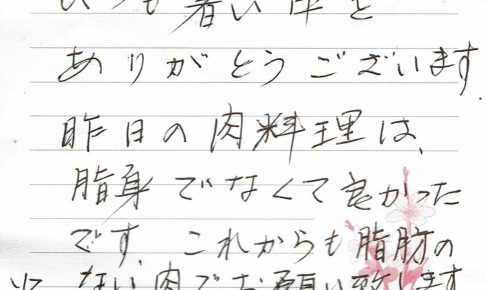 いつも暑い中を
ありがとうございます.
昨日の肉料理は、
脂身でなくて良かった
です。これからも脂肪の
少ない肉でお願い致します